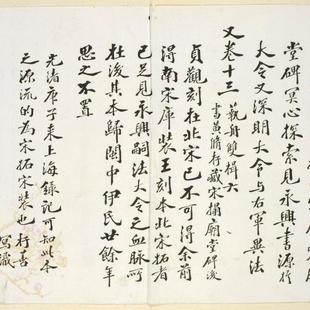 堂碑冥心探索見永興書源於
大令又深明大令與右軍異法
又卷十三
藝舟雙楫六
書黃脩存藏宋搨廟堂碑後
貞觀刻在北宋已不可得余前
得南宋庫裝王刻本北宋拓者
已足見永興嗣法大令之血脈所
在後其本歸閩中伊氏廿餘年
思之不置
光緒庚子來上海錄記可知此本
之源流的為宋拓宋裝也